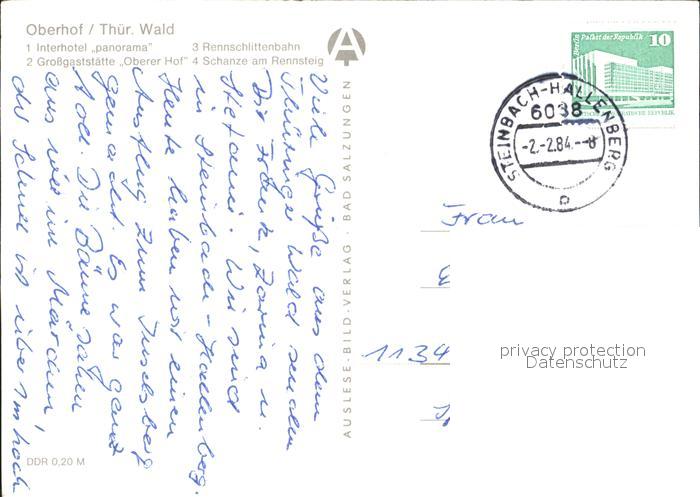 Oberhof / Thür. Wald
1 Interhotel „panorama" 3 Rennschlittenbahn
2 Großgaststätte „Oberer Hof" 4 Schanze am Rennsteig
Viele Grüße aus dem
Thüringer Wald senden
Dir Frank, u.
Stefanie. Wir sind
in Steinbach-Hallenberg.
Heute haben wir einen
Ausflug zum Inselsberg
gemacht. Es war ganz
toll. Die Bäume sahen
aus wie im Märchen,
der Schnee ist über 1m hoch
DDR 0,20 M
AUSLESE-BILD-VERLAG · BAD SALZUNGEN
Berlin Palast der Republik 10
DEUTSCHE DEMOKRATISCHE REPUBLIK
STEINBACH-HALLENBERG
6038
-2.-2.84.--8
Frau
1134
privacy protection
Datenschutz